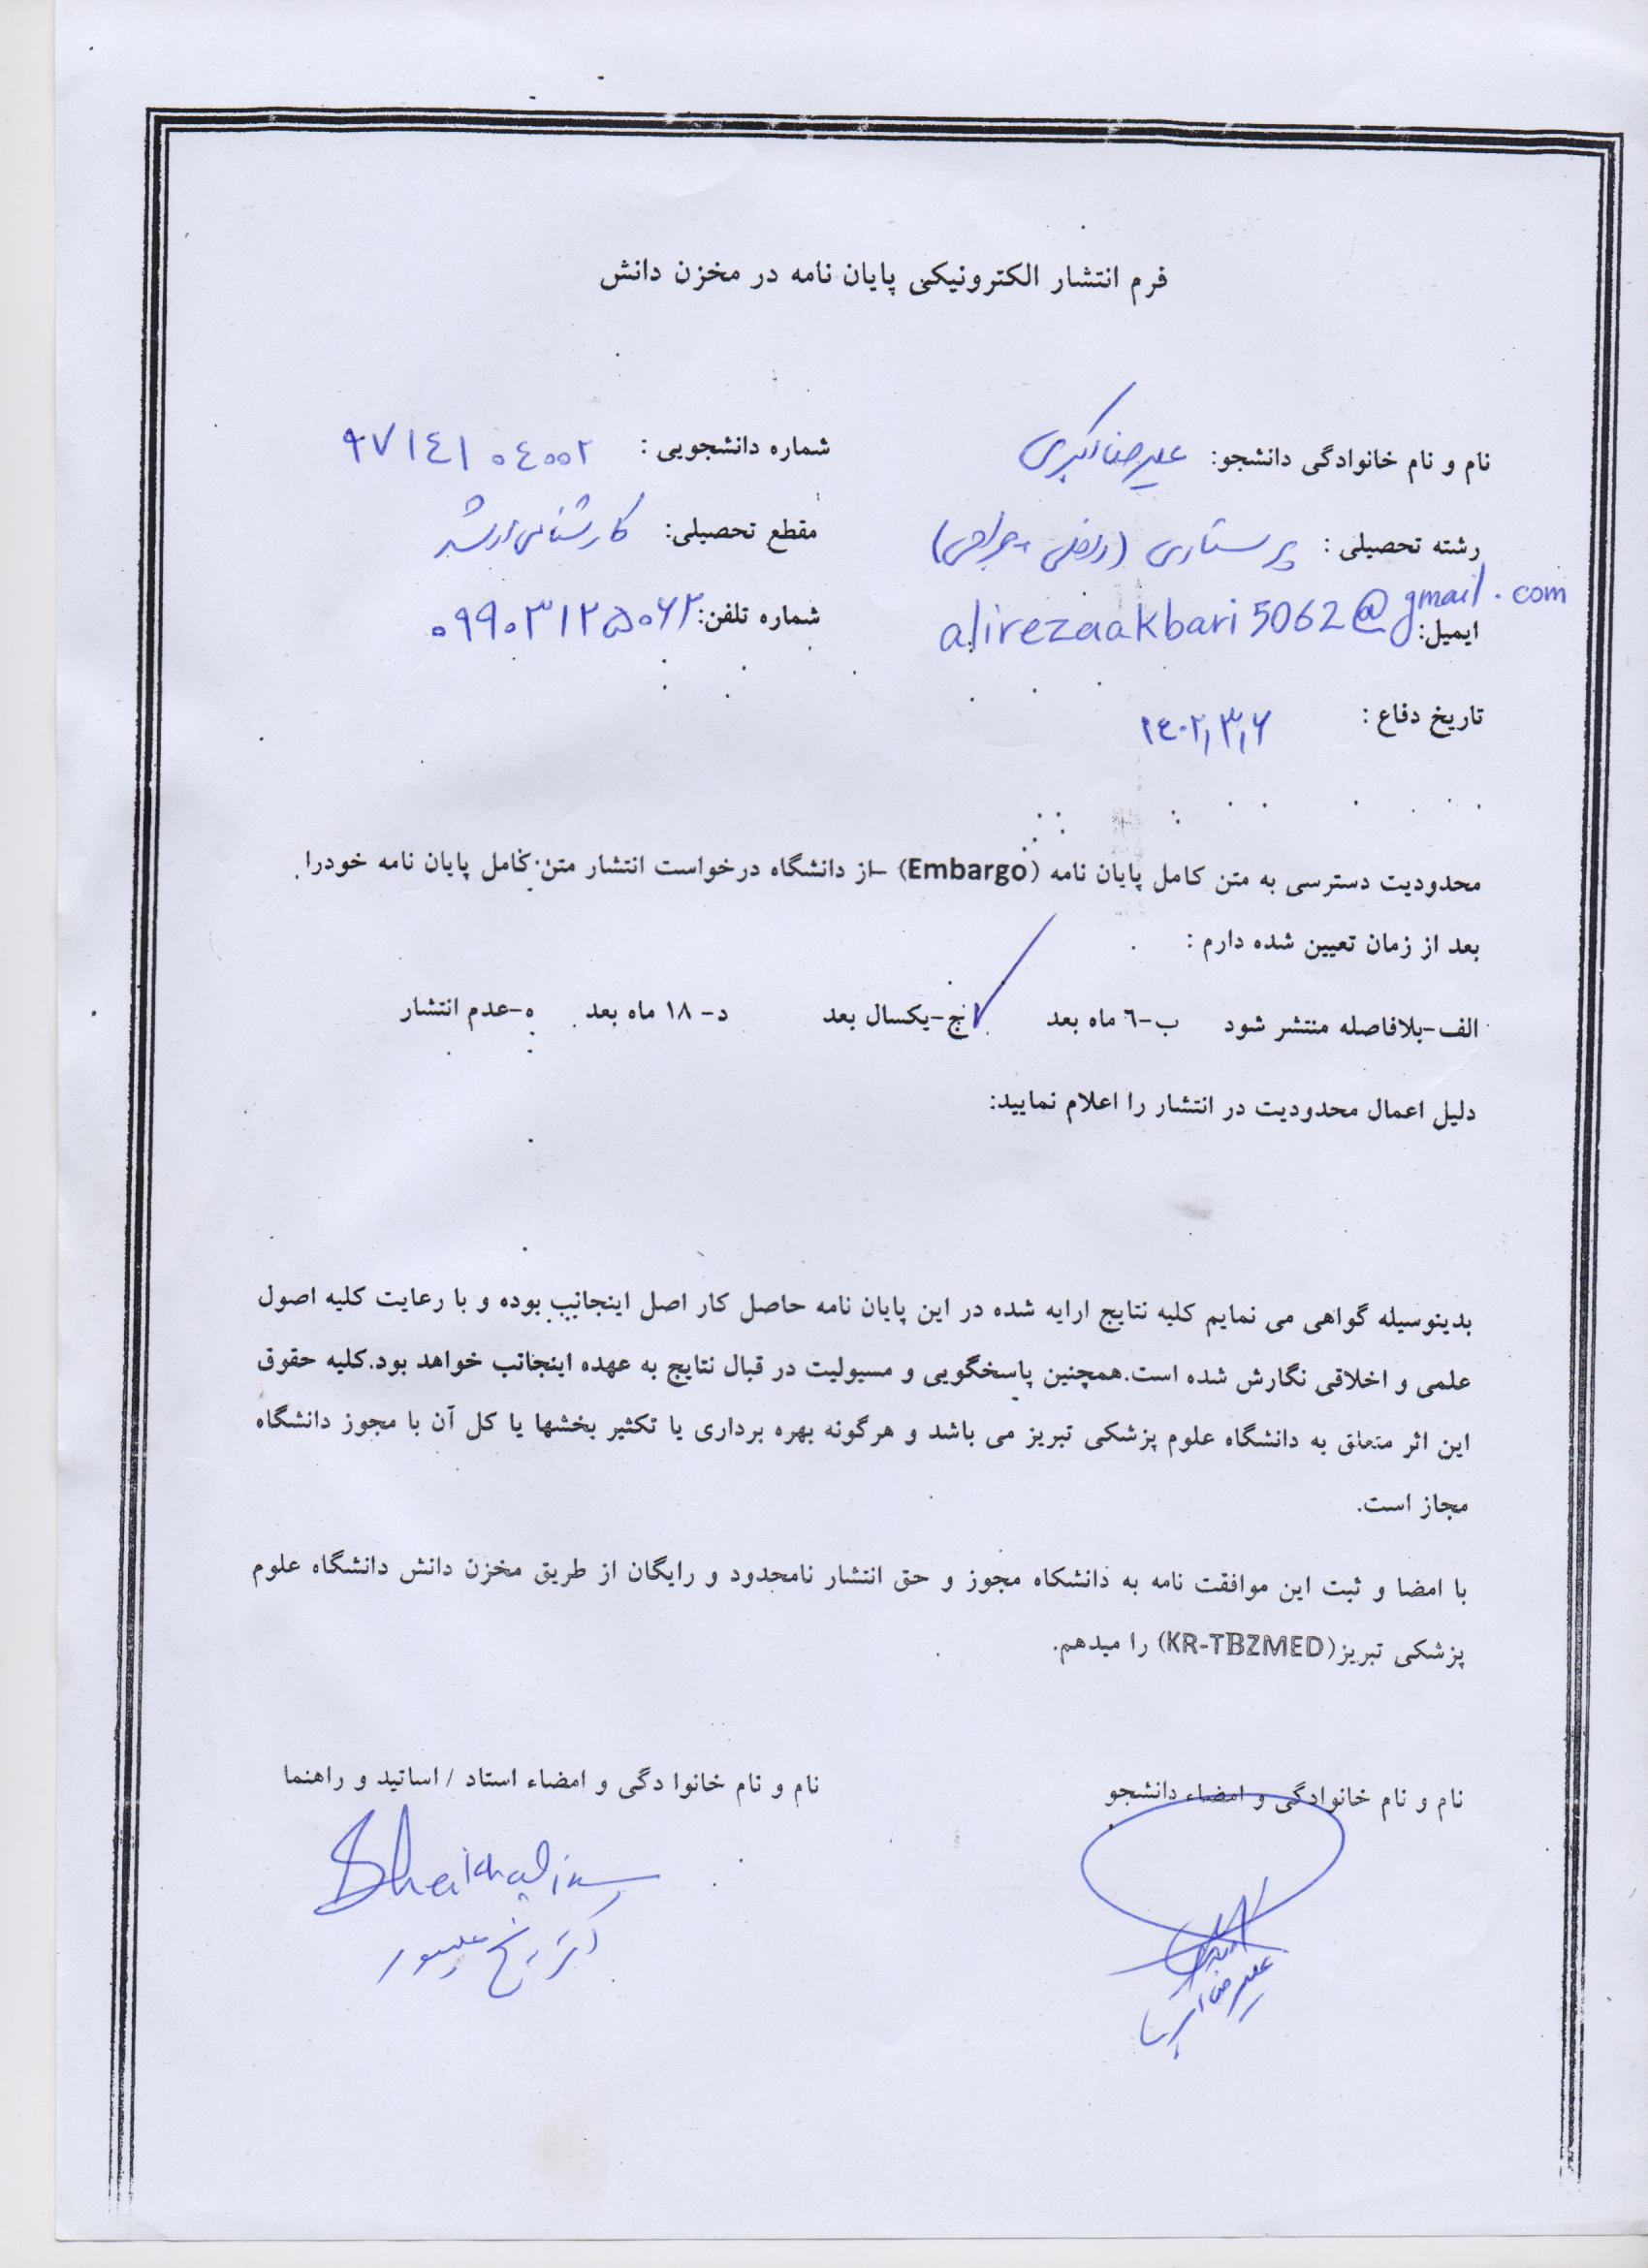 فرم انتشار الکترونیکی پایان نامه در مخزن دانش
نام و نام خانوادگی دانشجو: علیرضا اکبری شماره دانشجویی : ۹۷۱٤۱۰٤۰۰۲
رشته تحصیلی : پرستاری (داخلی - جراحی) مقطع تحصیلی: کارشناسی ارشد
ایمیل: alirezaakbari5062@gmail.com شماره تلفن: ۰۹۹۰۳۱۲۵۰۶۲
تاریخ دفاع : ۱٤۰۲,۳,۶
محدودیت دسترسی به متن کامل پایان نامه (Embargo) –از دانشگاه درخواست انتشار متن کامل پایان نامه خودرا
بعد از زمان تعیین شده دارم :
الف-بلافاصله منتشر شود ب-٦ ماه بعد ج-یکسال بعد د- ۱۸ ماه بعد ه-عدم انتشار
دلیل اعمال محدودیت در انتشار را اعلام نمایید:
بدینوسیله گواهی می نمایم کلیه نتایج ارایه شده در این پایان نامه حاصل کار اصل اینجانب بوده و با رعایت کلیه اصول
علمی و اخلاقی نگارش شده است.همچنین پاسخگویی و مسیولیت در قبال نتایج به عهده اینجانب خواهد بود.کلیه حقوق
این اثر متعلق به دانشگاه علوم پزشکی تبریز می باشد و هرگونه بهره برداری یا تکثیر بخشها یا کل آن با مجوز دانشگاه
مجاز است.
با امضا و ثبت این موافقت نامه به دانشکاه مجوز و حق انتشار نامحدود و رایگان از طریق مخزن دانش دانشگاه علوم
پزشکی تبریز(KR-TBZMED) را میدهم.
نام و نام خانوادگی و امضاء دانشجو نام و نام خانوا دگی و امضاء استاد / اساتید و راهنما
علیرضا اکبری دکتر شیخ علیپور